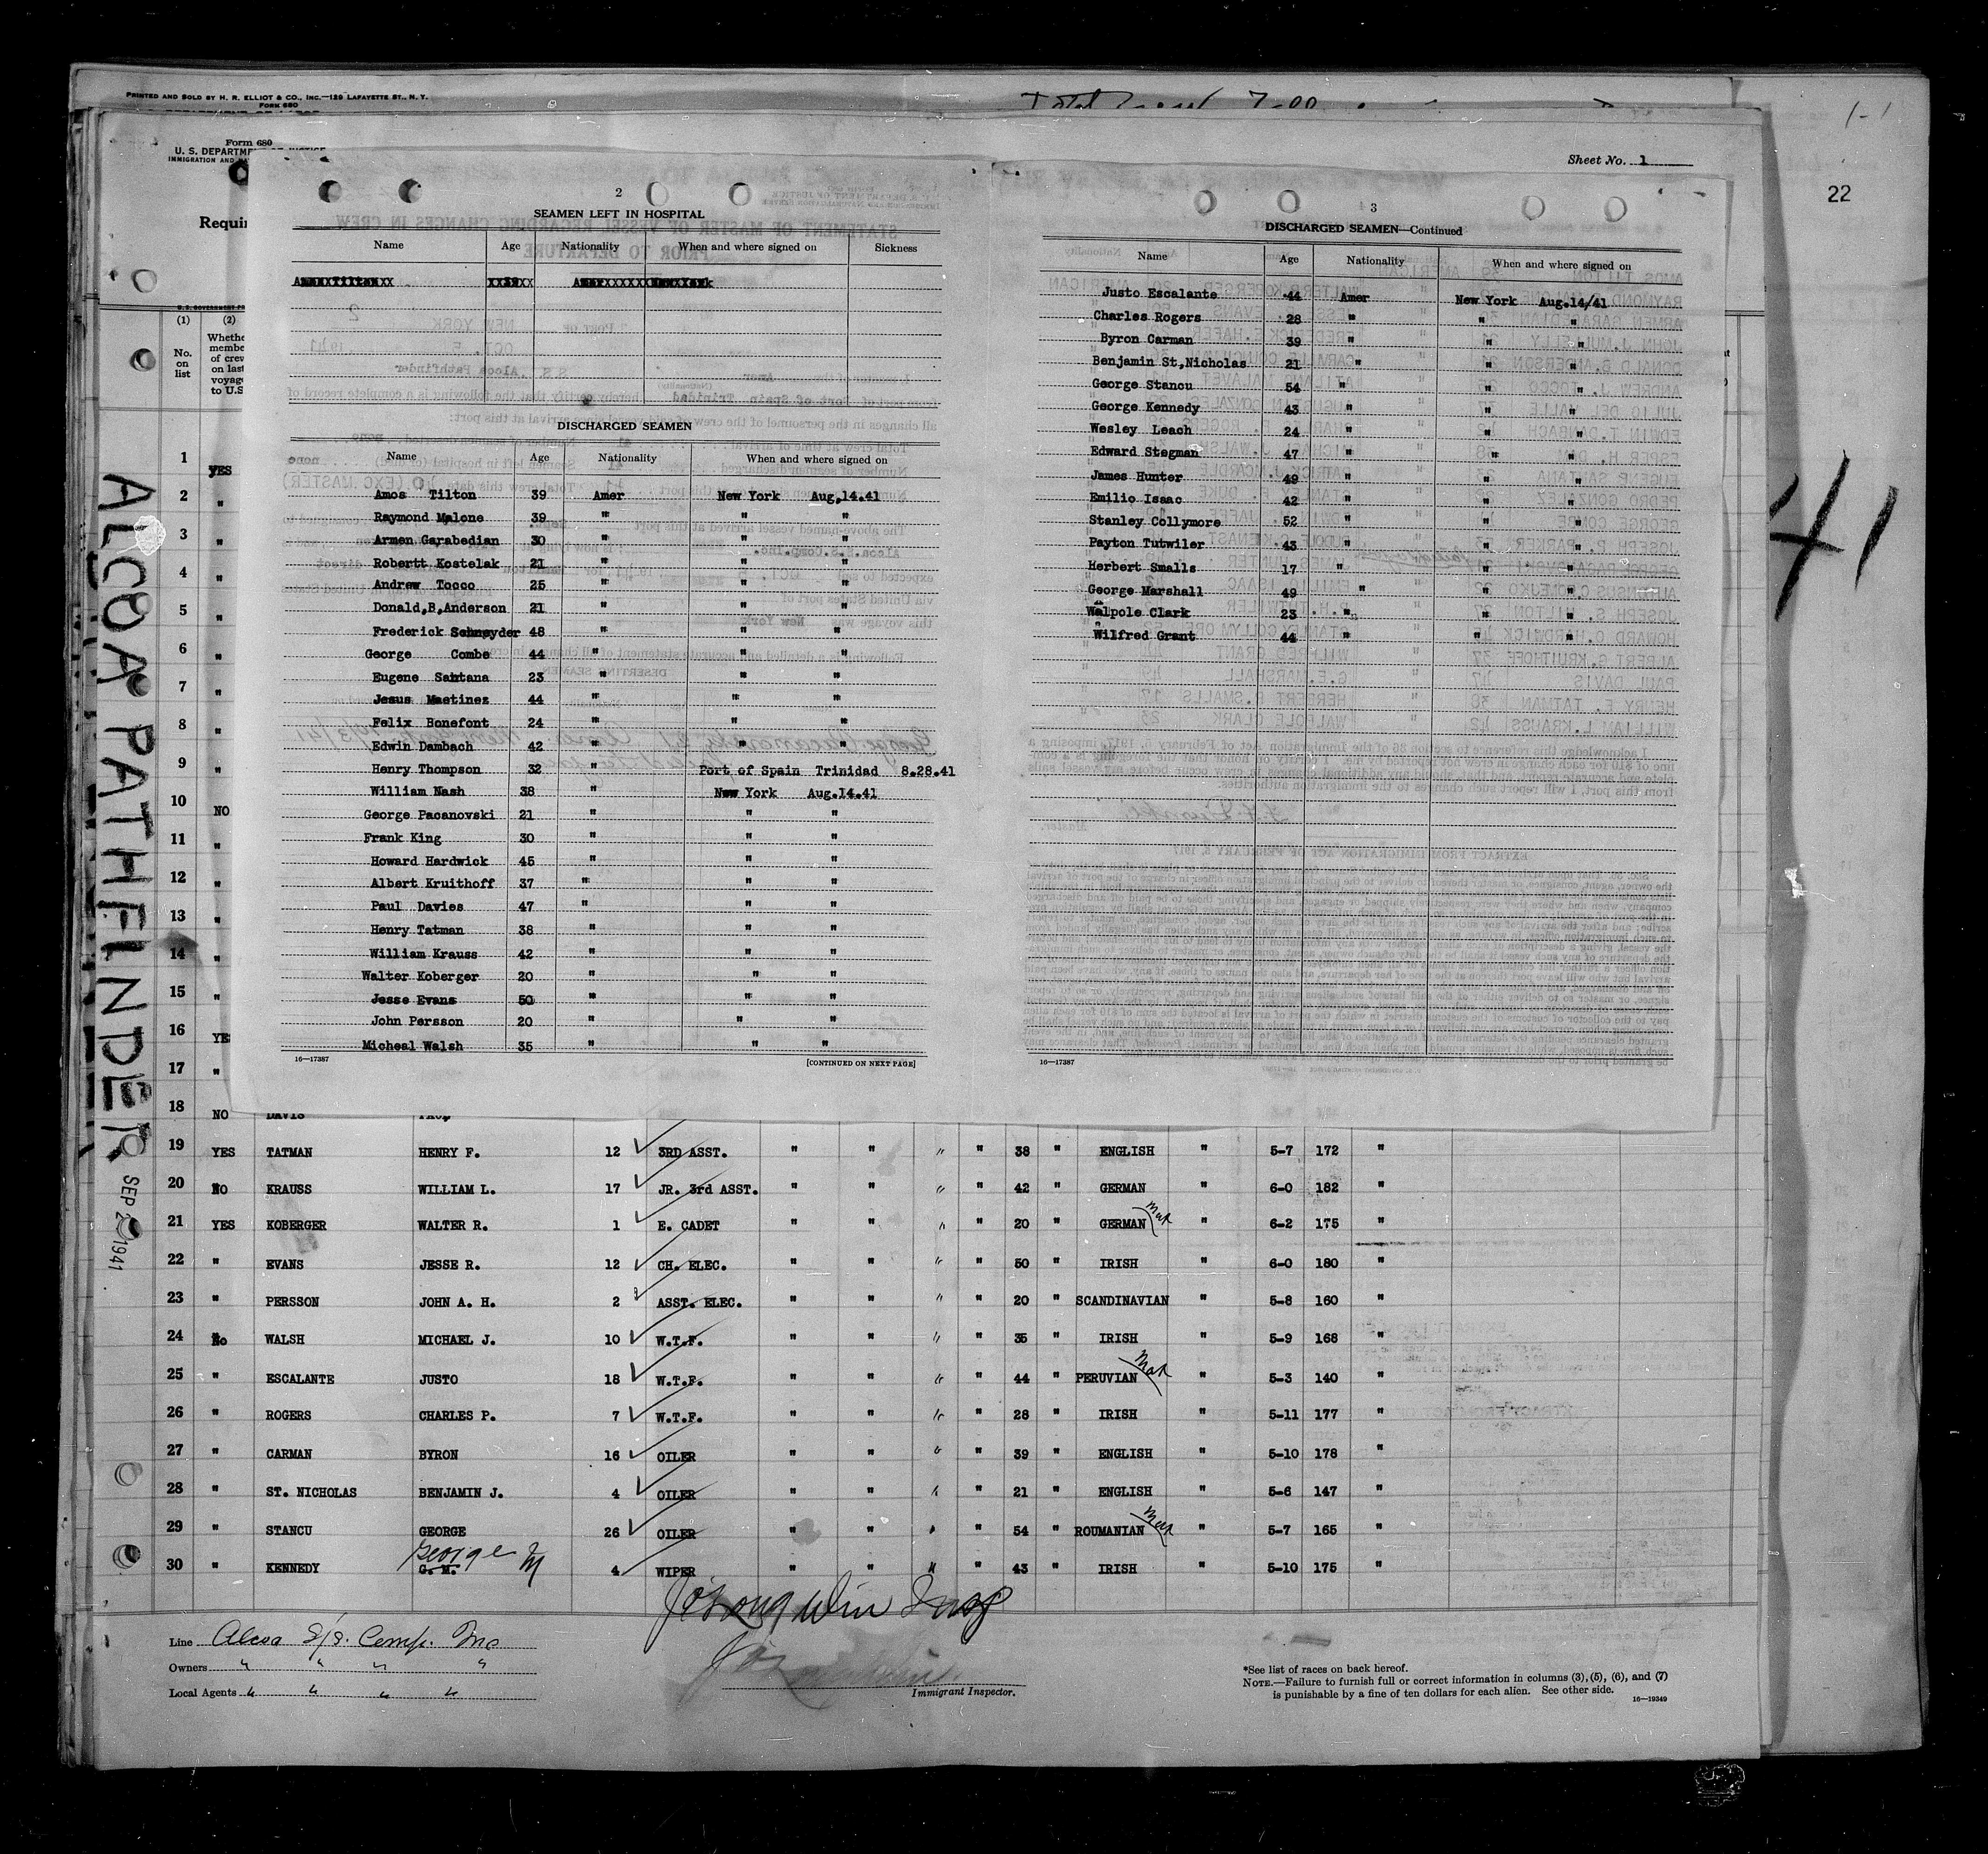 PRINTED AND SOLD BY H. R. ELLIOT & CO., INC.—120 LAFAYETTE ST., N. Y.
FORM 680
Form 680
U. S. DEPARTM
IMMIGRATION AND
Requir
Sheet No. 1
22
41
ALCOA PATHFINDER
SEP 2 1941
2
SEAMEN LEFT IN HOSPITAL
Name Age Nationality When and where signed on Sickness
DISCHARGED SEAMEN
Name Age Nationality When and where signed on
Amos Tilton 39 Amer New York Aug,14.41
Raymond Malone 39 " " "
Armen Garabedian 30 " " "
Robertt Kostelak 21 " " "
Andrew Tocco 25 " " "
Donald,B,Anderson 21 " " "
Frederick Schneyder 48 " " "
George Combe 44 " " "
Eugene Santana 23 " " "
Jesus Maetinez 44 " " "
Felix Bonefont 24 " " "
Edwin Dambach 42 " " "
Henry Thompson 32 " Port of Spain Trinidad 8.28.41
William Nash 38 " New York Aug.14.41
George Pacanovski 21 " " "
Frank King 30 " " "
Howard Hardwick 45 " " "
Albert Kruithoff 37 " " "
Paul Davies 47 " " "
Henry Tatman 38 " " "
William Krauss 42 " " "
Walter Koberger 20 " " "
Jesse Evans 50 " " "
John Persson 20 " " "
Micheal Walsh 35 " " "
16—17387 [CONTINUED ON NEXT PAGE]
3
DISCHARGED SEAMEN—Continued
Name Age Nationality When and where signed on
Justo Escalante 44 Amer New York Aug.14/41
Charles Rogers 28 " " "
Byron Carman 39 " " "
Benjamin St,Nicholas 21 " " "
George Stancu 54 " " "
George Kennedy 43 " " "
Wesley Leach 24 " " "
Edward Stegman 47 " " "
James Hunter 49 " " "
Emilio Isaac 42 " " "
Stanley Collymore 52 " " "
Payton Tutwiler 43 " " "
Herbert Smalls 17 " " "
George Marshall 49 " " "
Walpole Clark 23 " " "
Wilfred Grant 44 " " "
16—17387
(1) (2)
No. on list
Whethe
membe
of crew
on last
voyage
to U.S
1 YES
2 "
3 "
4 "
5 "
6 "
7 "
8 "
9 "
10 NO
11 "
12 "
13 "
14 "
15 "
16 YE
17 "
18 NO DAVIS
19 YES TATMAN HENRY F. 12 3RD ASST. " " " " 38 " ENGLISH " 5-7 172 "
20 No KRAUSS WILLIAM L. 17 JR. 3rd ASST. " " " " 42 " GERMAN " 6-0 182 "
21 YES KOBERGER WALTER R. 1 E. CADET " " " " 20 " GERMAN " 6-2 175 "
22 " EVANS JESSE R. 12 CH. ELEC. " " " " 50 " IRISH " 6-0 180 "
23 " PERSSON JOHN A. H. 2 ASST. ELEC. " " " " 20 " SCANDINAVIAN " 5-8 160 "
24 No WALSH MICHAEL J. 10 W.T.F. " " " " 35 " IRISH " 5-9 168 "
25 " ESCALANTE JUSTO 18 W.T.F. " " " " 44 " PERUVIAN " 5-3 140 "
26 " ROGERS CHARLES P. 7 W.T.F. " " " " 28 " IRISH " 5-11 177 "
27 " CARMAN BYRON 16 OILER " " " " 39 " ENGLISH " 5-10 178 "
28 " ST. NICHOLAS BENJAMIN J. 4 OILER " " " " 21 " ENGLISH " 5-6 147 "
29 " STANCU GEORGE 26 OILER " " " " 54 " ROUMANIAN " 5-7 165 "
30 " KENNEDY G. M. George M 4 WIPER " " " " 43 " IRISH " 5-10 175 "
Line Alcoa S/S. Comp. Inc
Owners " " " "
Local Agents " " " "
Immigrant Inspector.
*See list of races on back hereof.
NOTE.—Failure to furnish full or correct information in columns (3), (5), (6), and (7)
is punishable by a fine of ten dollars for each alien. See other side.
16—19349